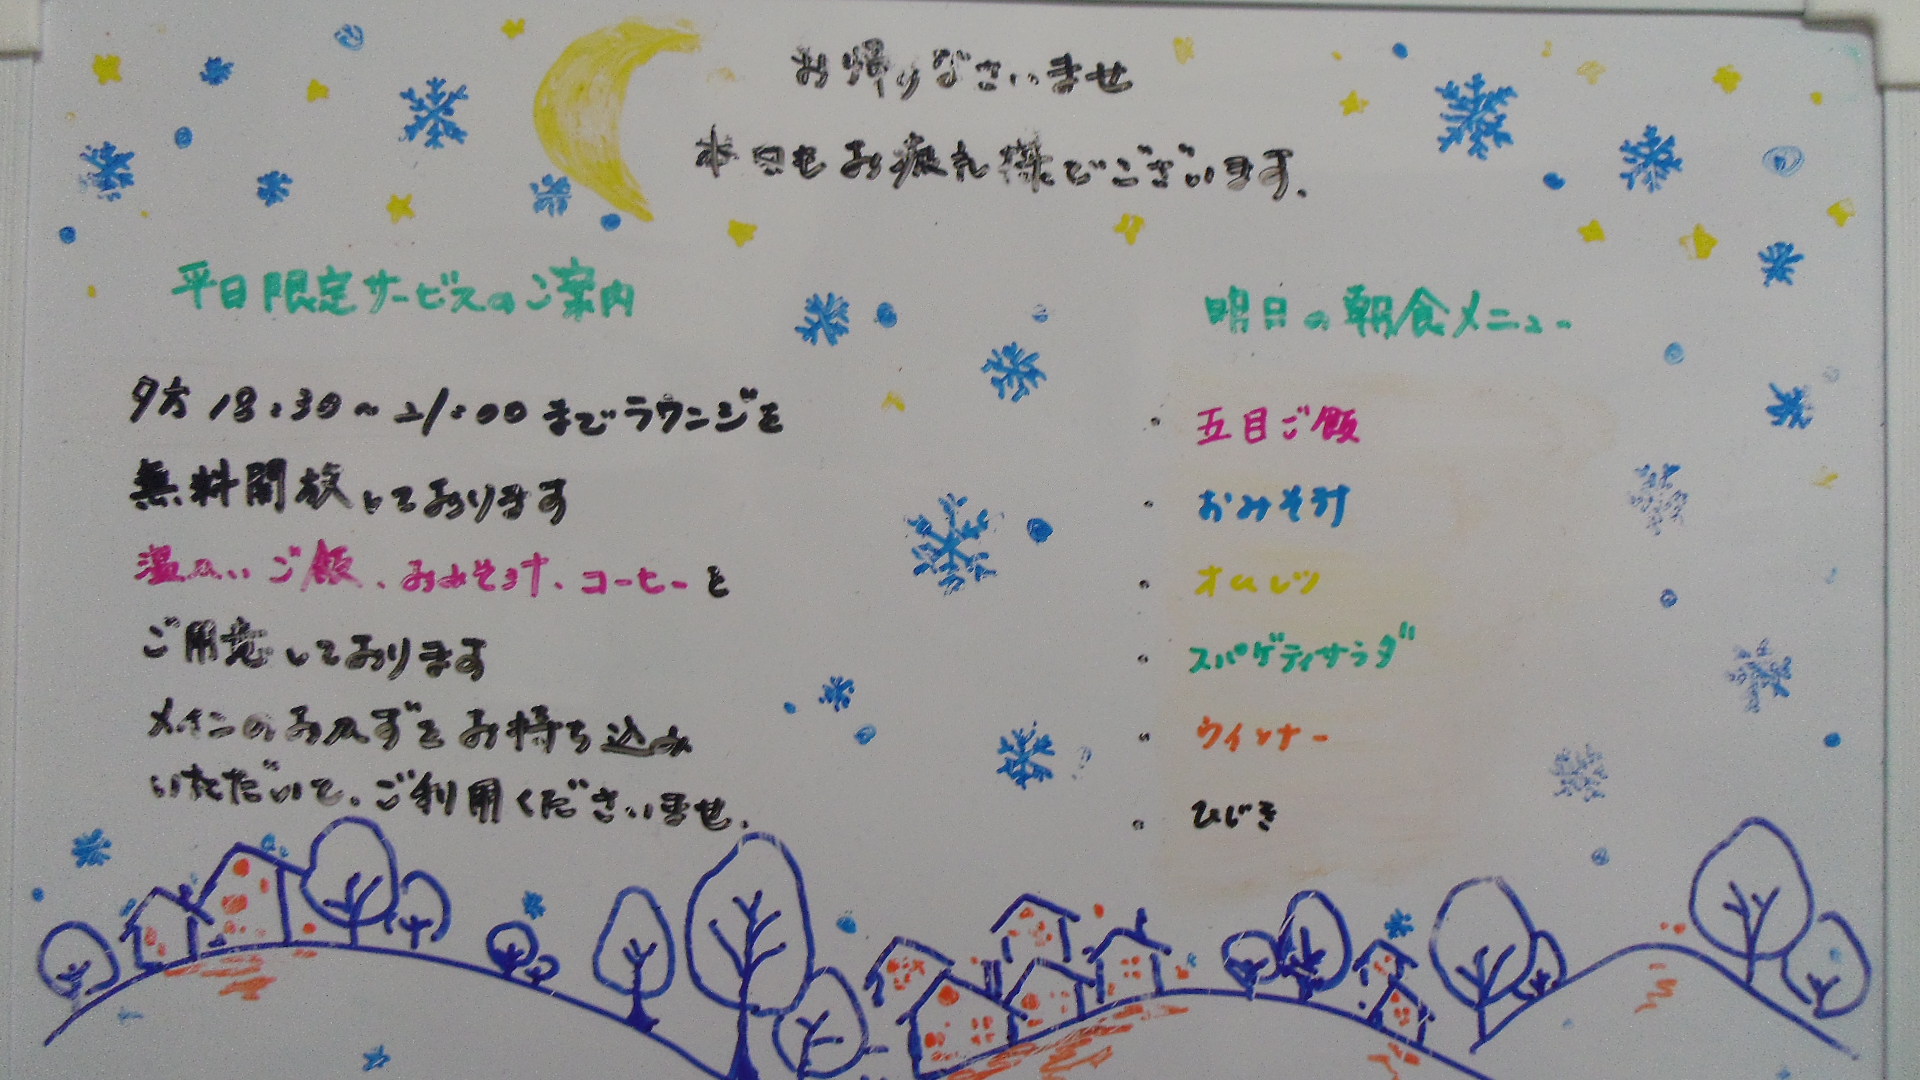 お帰りなさいませ
本日もお疲れ様でございます。
平日限定サービスのご案内
夕方18:30~21:00までラウンジを
無料開放しております
温かいご飯、おみそ汁、コーヒーを
ご用意しております
メインのおかずをお持ち込み
いただいて、ご利用くださいませ。
明日の朝食メニュー
・五目ご飯
・おみそ汁
・オムレツ
・スパゲティサラダ
・ウインナー
・ひじき